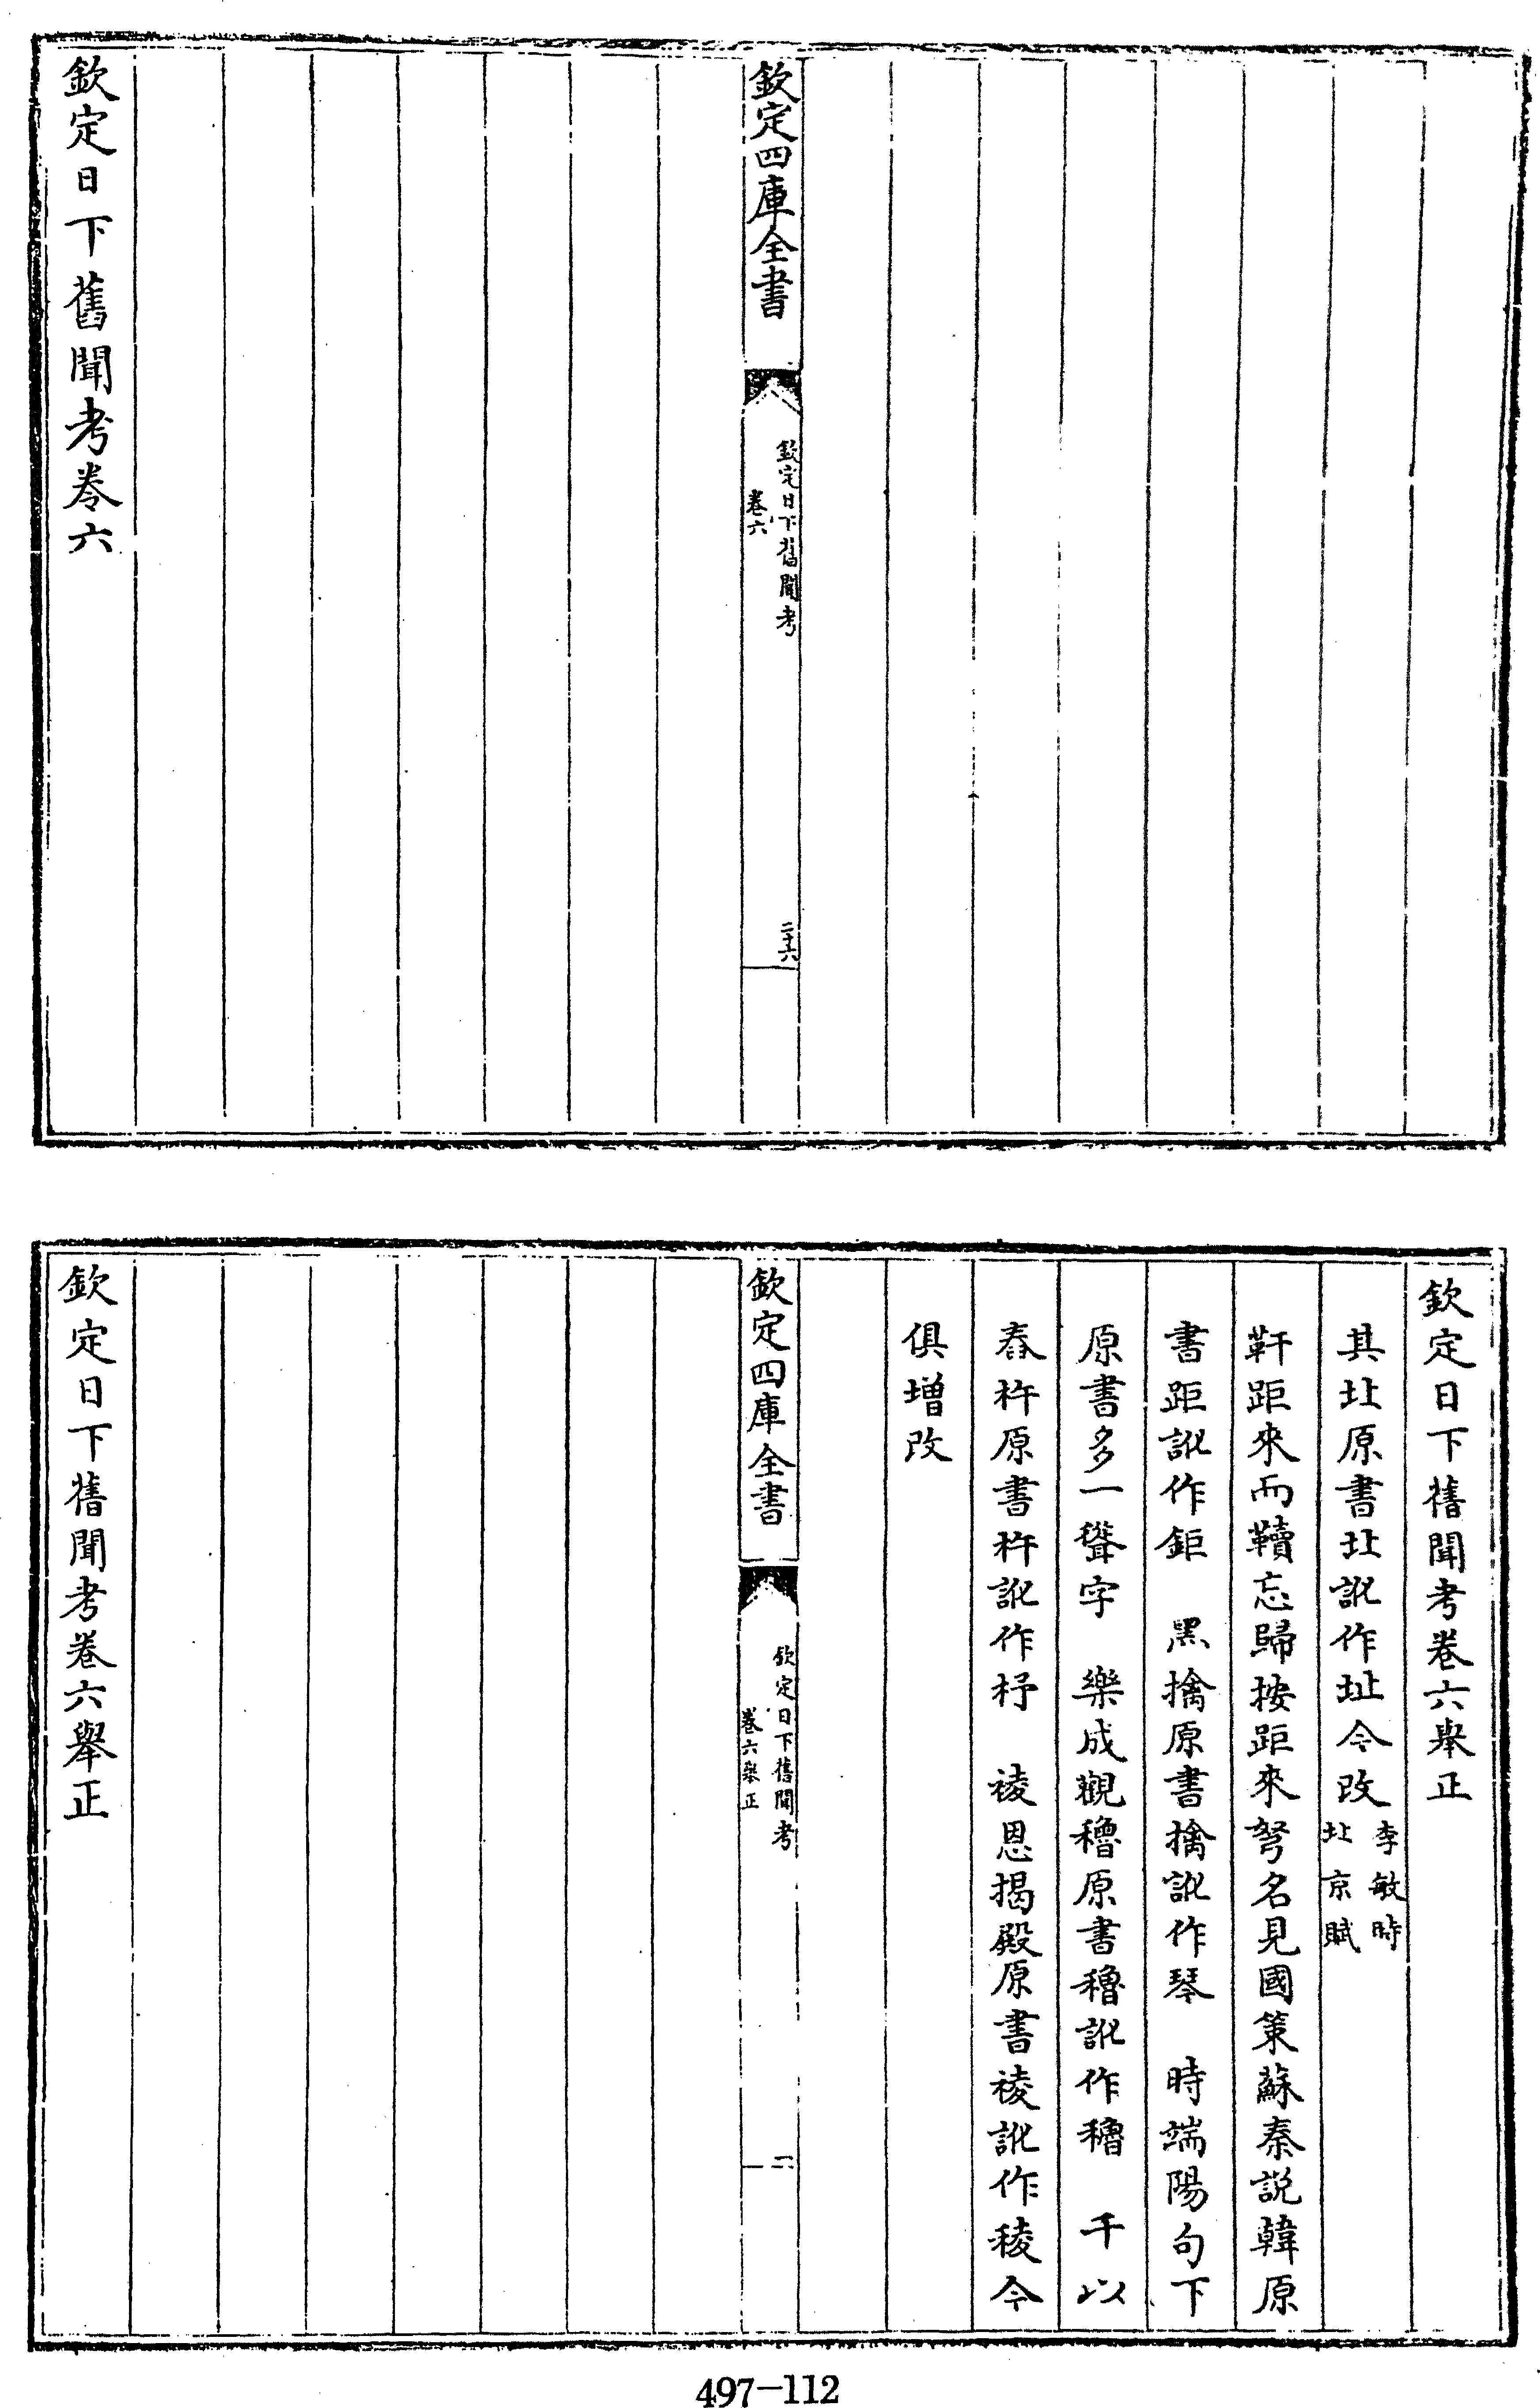 欽定四庫全書
欽定日下舊聞考
卷六
二十六
欽定日下舊聞考卷六
欽定日下舊聞考卷六舉正
其北原書北訛作址今改李敏時
北京賦
靬距來而韇忘歸按距來弩名見國策蘇秦説韓原
書距訛作鉅　黑擒原書擒訛作琴　時端陽句下
原書多一聳字　樂成觀穭原書穭訛作穞　千以
春杵原書杵訛作杼　祾恩揭殿原書祾訛作稜今
俱增改
欽定四庫全書
欽定日下舊聞考
卷六舉正
二
欽定日下舊聞考卷六舉正
497-112